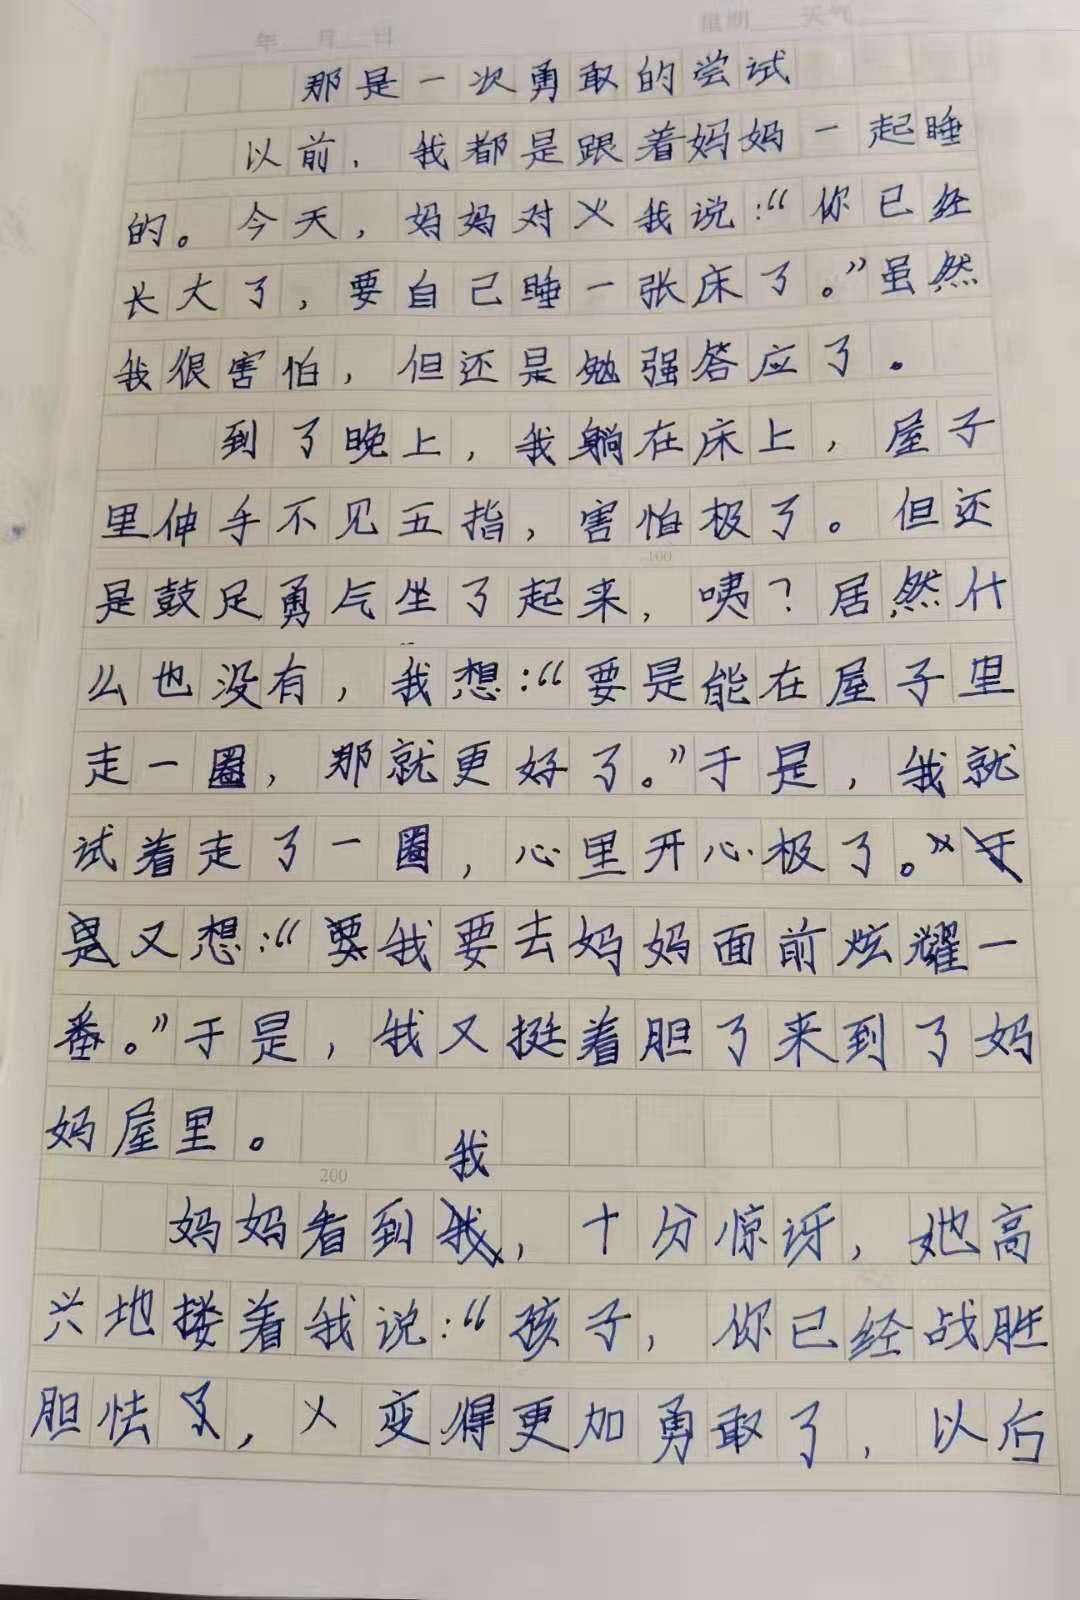 年 月 日 星期 天气
那是一次勇敢的尝试
以前，我都是跟着妈妈一起睡
的。今天，妈妈对我说：“你已经
长大了，要自己睡一张床了。”虽然
我很害怕，但还是勉强答应了。
到了晚上，我躺在床上，屋子
里伸手不见五指，害怕极了。但还
是鼓足勇气坐了起来，咦？居然什
100
么也没有，我想：“要是能在屋子里
走一圈，那就更好了。”于是，我就
试着走了一圈，心里开心极了。
又想：“我要去妈妈面前炫耀一
番。”于是，我又挺着胆了来到了妈
妈屋里。
200
妈妈看到我，十分惊讶，她高
兴地搂着我说：“孩子，你已经战胜
胆怯了，变得更加勇敢了，以后